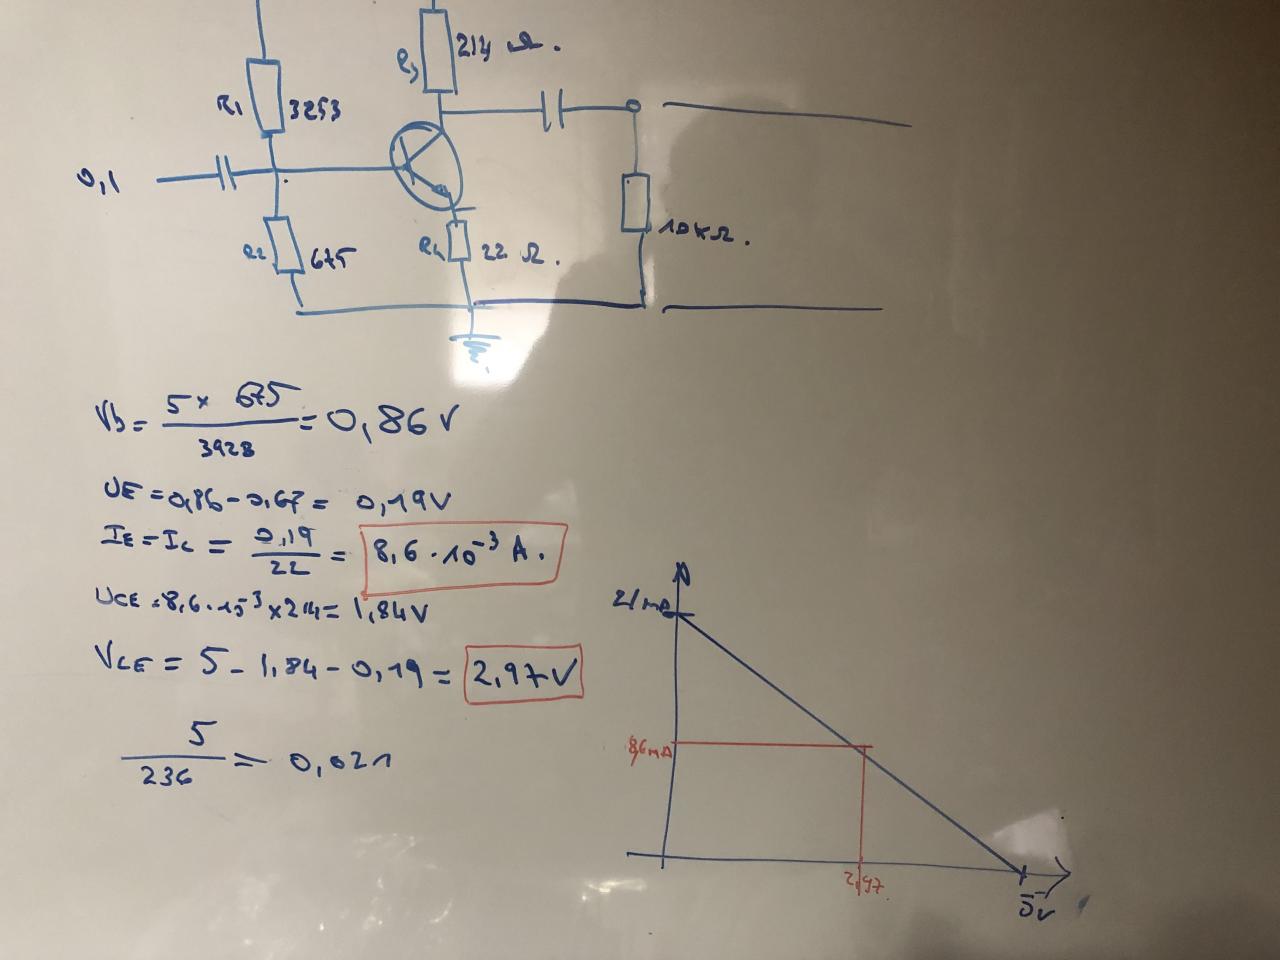 R3
214 Ω.
R1
3253
0,1
R2
675
R4
22 Ω.
10KΩ.
Vb = 5 × 675 / 3928 = 0,86 V
UE = 0,86 - 0,67 = 0,19V
IE = IC = 0,19 / 22 = 8,6 · 10⁻³ A.
UCE = 8,6 · 10⁻³ × 214 = 1,84V
VCE = 5 - 1,84 - 0,19 = 2,97V
5 / 236 = 0,021
21mA
8,6mA
2,97
5v